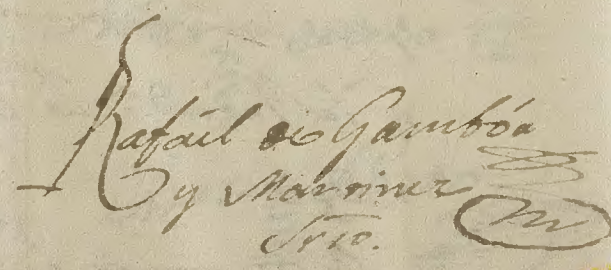 Rafáel de Gambóa
y Martinez
Srio.